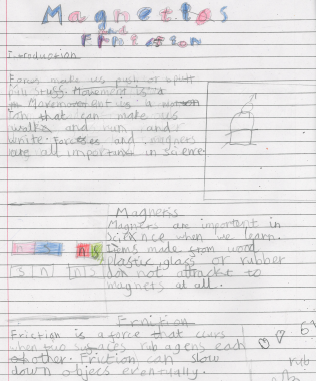 Magnetics
and
Friction
Introduction
Forces make us push or
pull stuff. Movement is a
Movement is a
that can make us
walk and run and
write. Forces and magnets
are all important in science.
Magnets
Magners are important in
science when we learn.
n s Items made from wood
plastic glass or rubber
s n n s do not attract to
magnets at all.
Frniction
Friction is a force that
when two surfaces rub agens each
other. Friction can slow
down objects eventually.
rub